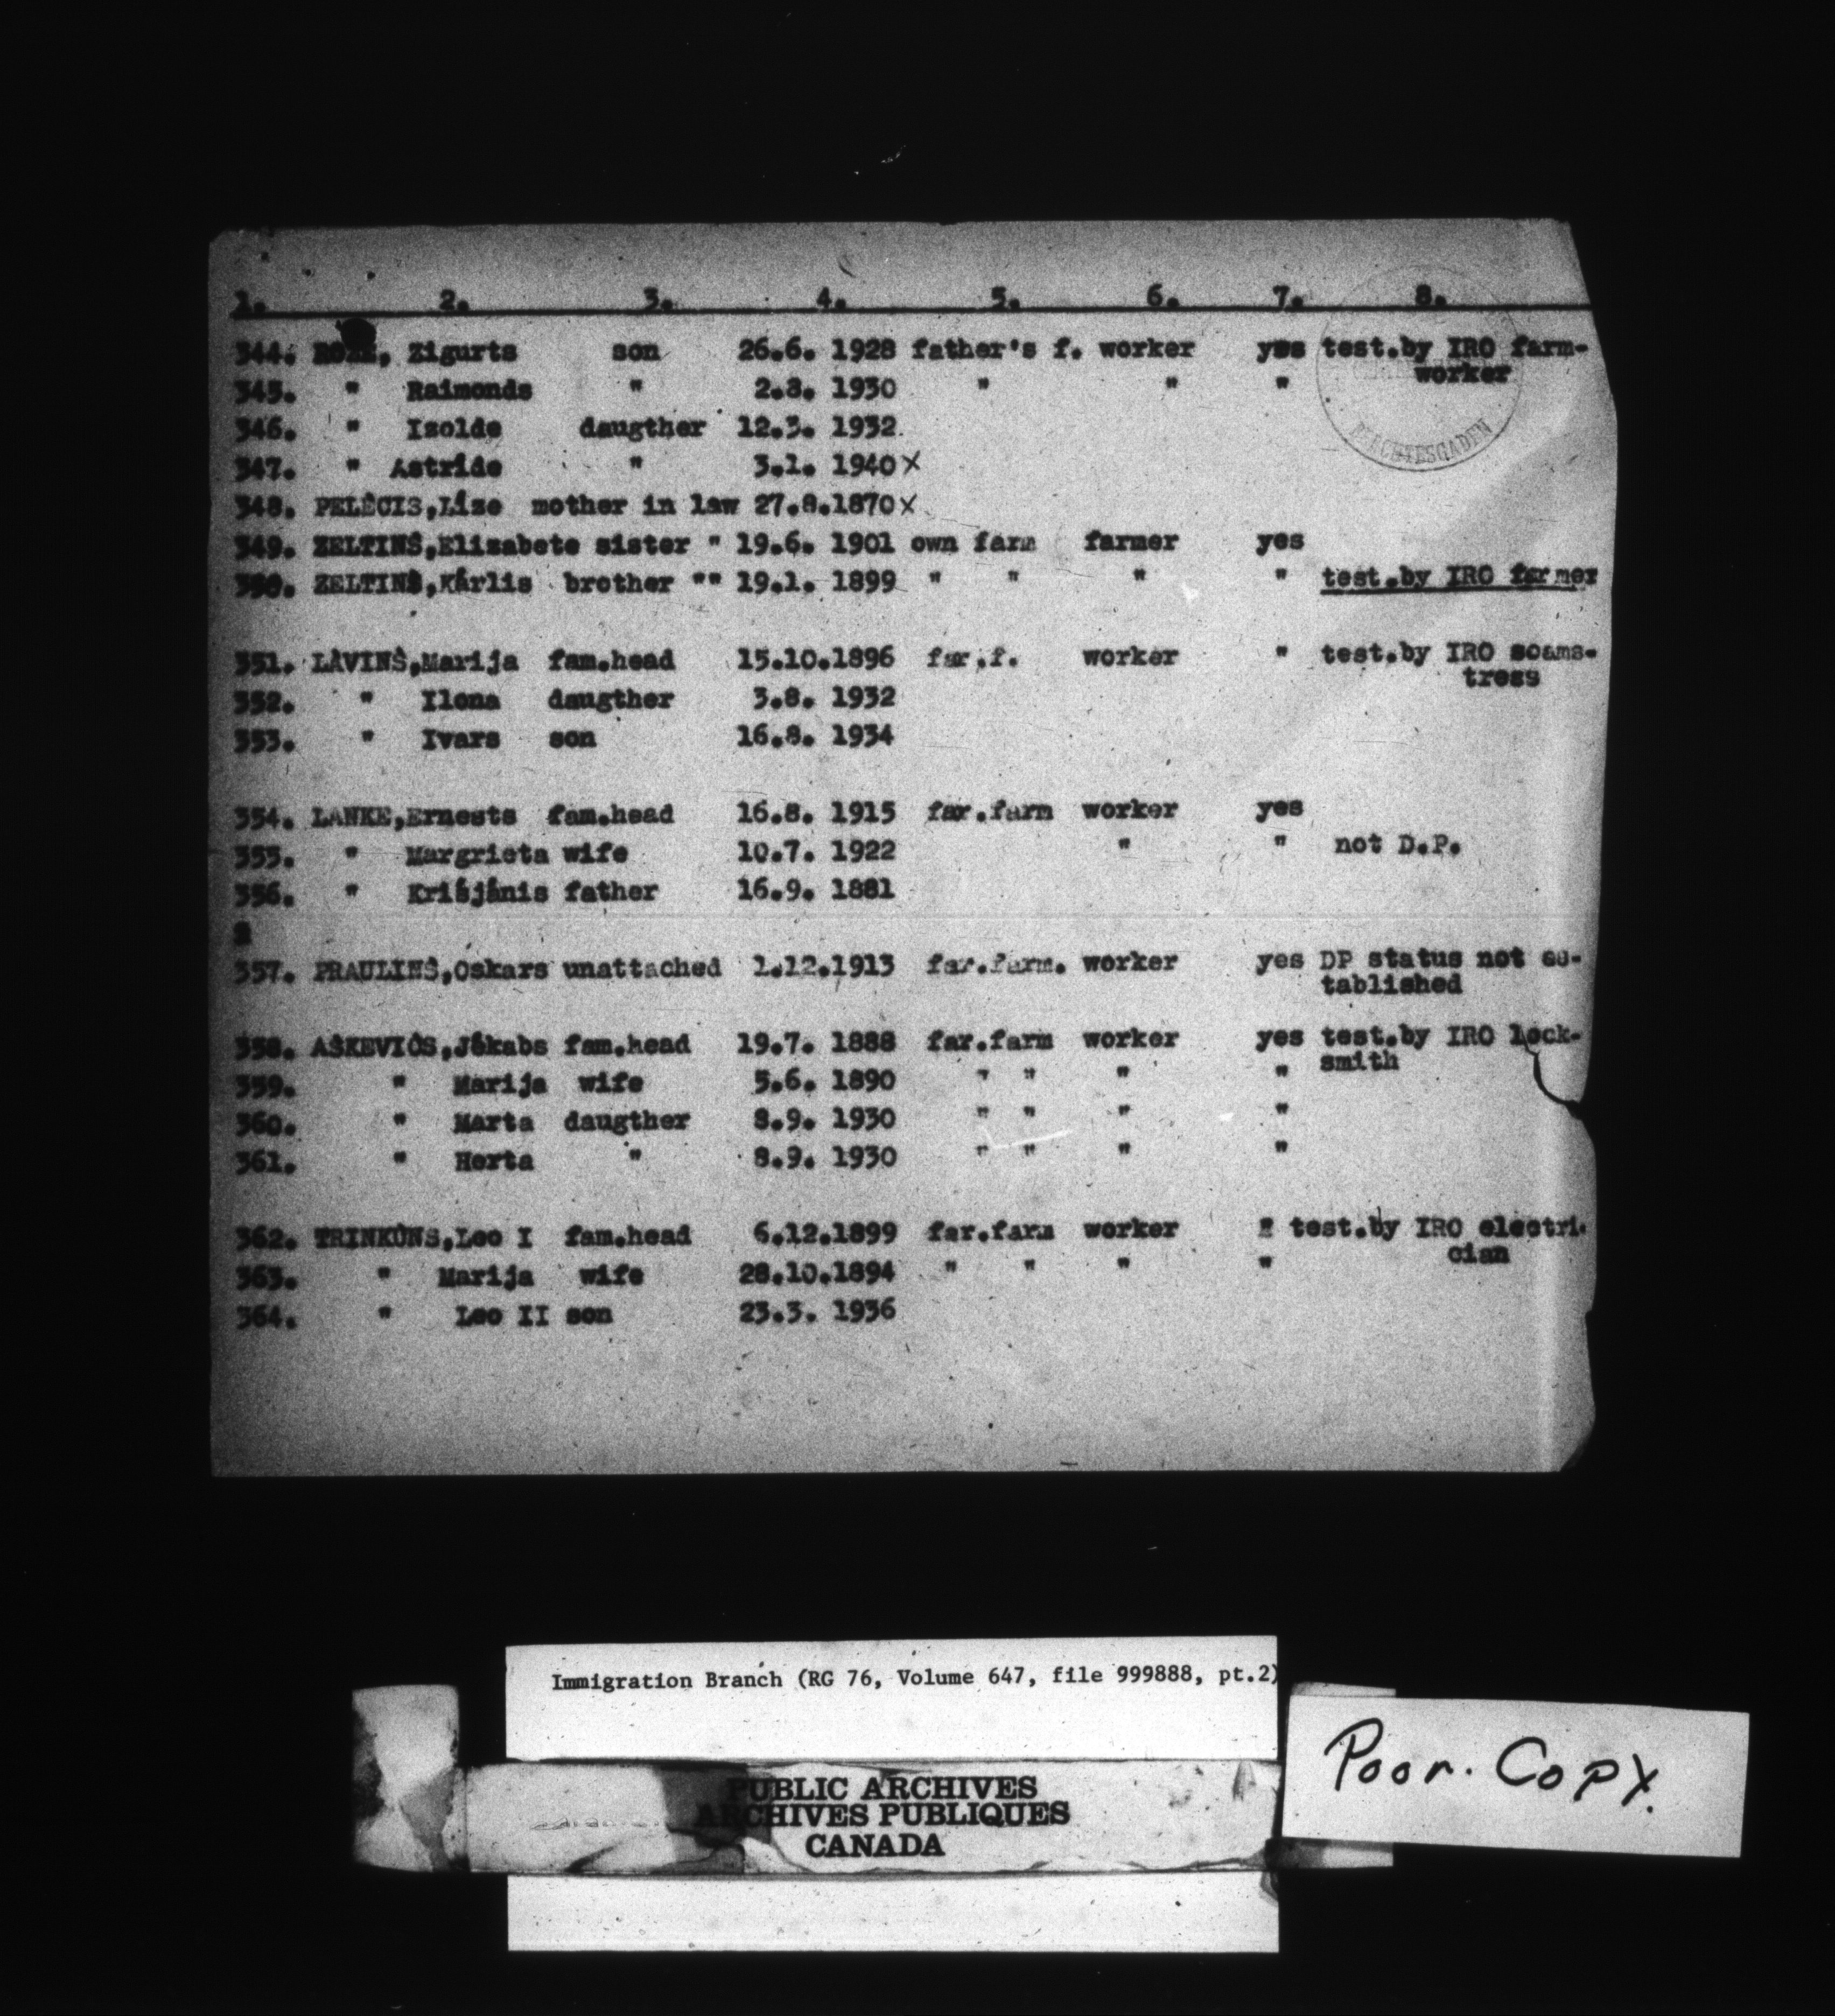 1. 2. 3. 4. 5. 6. 7. 8.
344. ROZE, Zigurts son 26.6. 1928 father's f. worker yes test.by IRO farm-
worker
345. " Raimonds " 2.8. 1930 " " "
346. " Izolde daugther 12.3. 1932
347. " Astride " 3.1. 1940 x
348. PELĒCIS,Līze mother in law 27.8.1870 x
349. ZELTIŅŠ,Elizabete sister " 19.6. 1901 own farm farmer yes
350. ZELTIŅŠ,Kārlis brother "" 19.1. 1899 " " " " test.by IRO farmer
351. LAVIŅŠ,Marija fam.head 15.10.1896 far.f. worker " test.by IRO seams-
tress
352. " Ilona daugther 3.8. 1932
353. " Ivars son 16.8. 1934
354. LANKE,Ernests fam.head 16.8. 1915 far.farm worker yes
355. " Margrieta wife 10.7. 1922 " " not D.P.
356. " Krišjānis father 16.9. 1881
357. PRAULIŅŠ,Oskars unattached 1.12.1913 far.farm. worker yes DP status not es-
tablished
358. AŠKEVICS,Jēkabs fam.head 19.7. 1888 far.farm worker yes test.by IRO lock-
smith
359. " Marija wife 5.6. 1890 " " " "
360. " Marta daugther 8.9. 1930 " " " "
361. " Herta " 8.9. 1930 " " " "
362. TRINKŪNS,Leo I fam.head 6.12.1899 far.farm worker " test.by IRO electri-
cian
363. " Marija wife 28.10.1894 " " " "
364. " Leo II son 23.3. 1936
BERCHTESGADEN
Immigration Branch (RG 76, Volume 647, file 999888, pt.2)
PUBLIC ARCHIVES
ARCHIVES PUBLIQUES
CANADA
Poor. Copy.